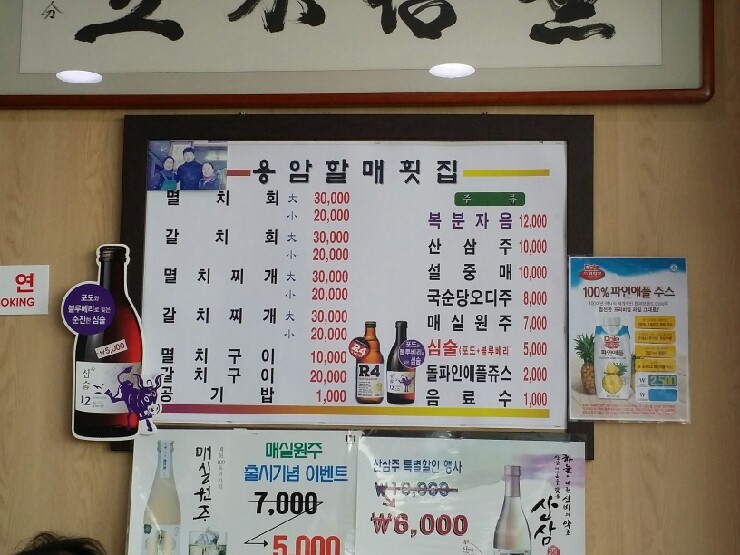 용암할매횟집
멸치회 大 30,000
小 20,000
갈치회 大 30,000
小 20,000
멸치찌개 大 30,000
小 20,000
갈치찌개 大 30,000
小 20,000
멸치구이 10,000
갈치구이 20,000
공기밥 1,000
주류
복분자음 12,000
산삼주 10,000
설중매 10,000
국순당오디주 8,000
매실원주 7,000
심술(포도+블루베리) 5,000
돌파인애플쥬스 2,000
음료수 1,000
R4
R4
포도와
블루베리로 빚은
순진한 심술
₩5,000
심술
12
연
OKING
100% 파인애플 쥬스
Dole
파인애플
₩ 2,500
₩
매실원주
매실원주
출시기념 이벤트
7,000
5,000
산삼주 특별할인 행사
₩10,000
₩6,000
산삼